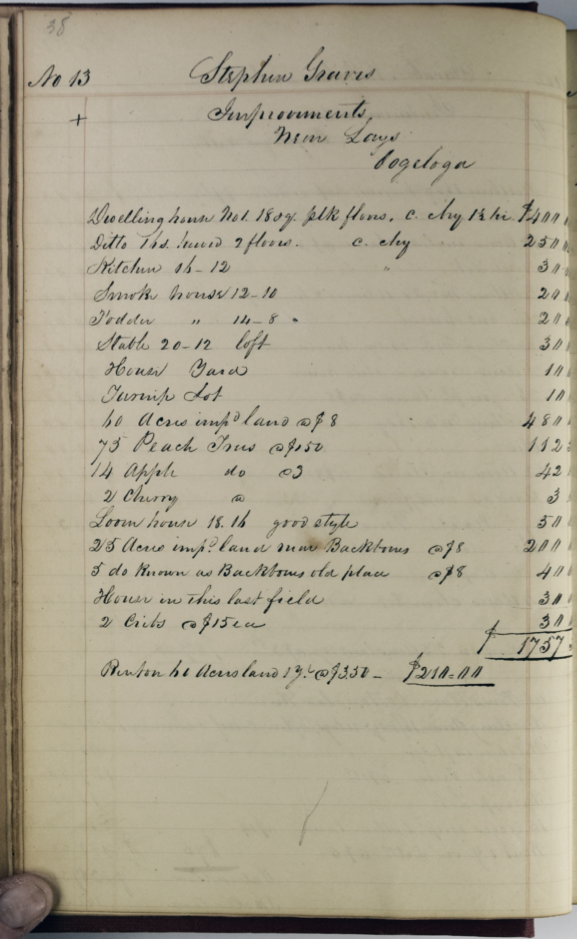 38
No 13 Stephen Graves
+ Improvements,
Near Lays
Oogeloga
Dwelling house No 1. 18 sq. plk floors. c. chy 1½ hi $400
Ditto 16 s. hewed 2 floors. c. chy 250
Kitchen 16-12 " 30
Smoke house 12-10 20
Fodder " 14-8 " 20
Stable 20-12 loft 30
House Yard 10
Turnip Lot 10
60 Acres impd land @ $8 480
75 Peach Trees @ $1.50 112
14 Apple do @ 3 42
2 Cherry @ 3
Loom house 18.16 good style 50
25 Acres impd land near Backbones @ $8 200
5 do Known as Backbones old place @ $8 40
House in this last field 30
2 Cribs @ $15 ea 30
$ 1757
Rent on 60 Acres land 1 y. @ $3.50 - $210.00